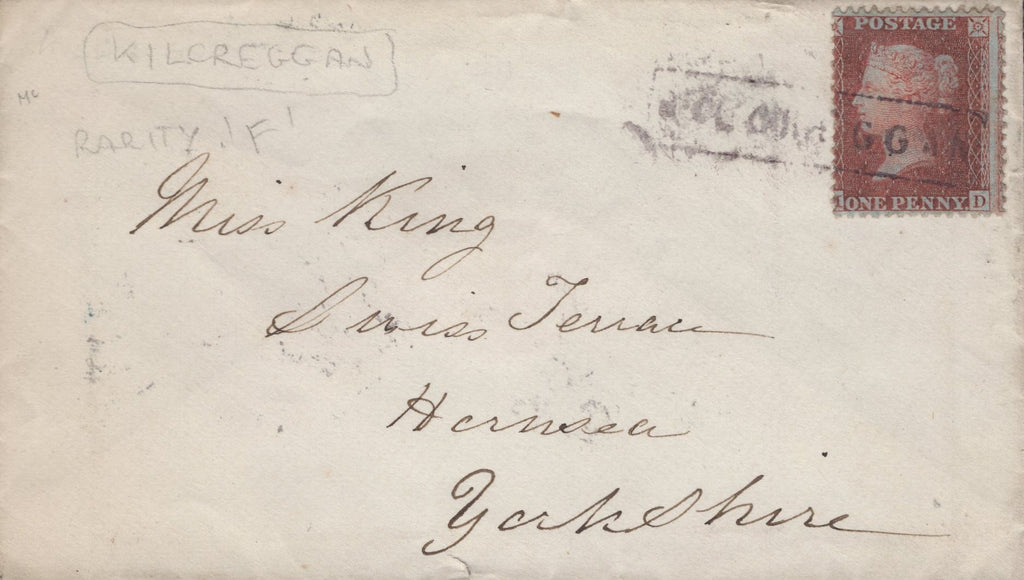 KILCREGGAN
Mc
RARITY 'F'
POSTAGE
GGAN
ONE PENNY D
Miss King
Swiss Terrace
Hornsea
Yorkshire